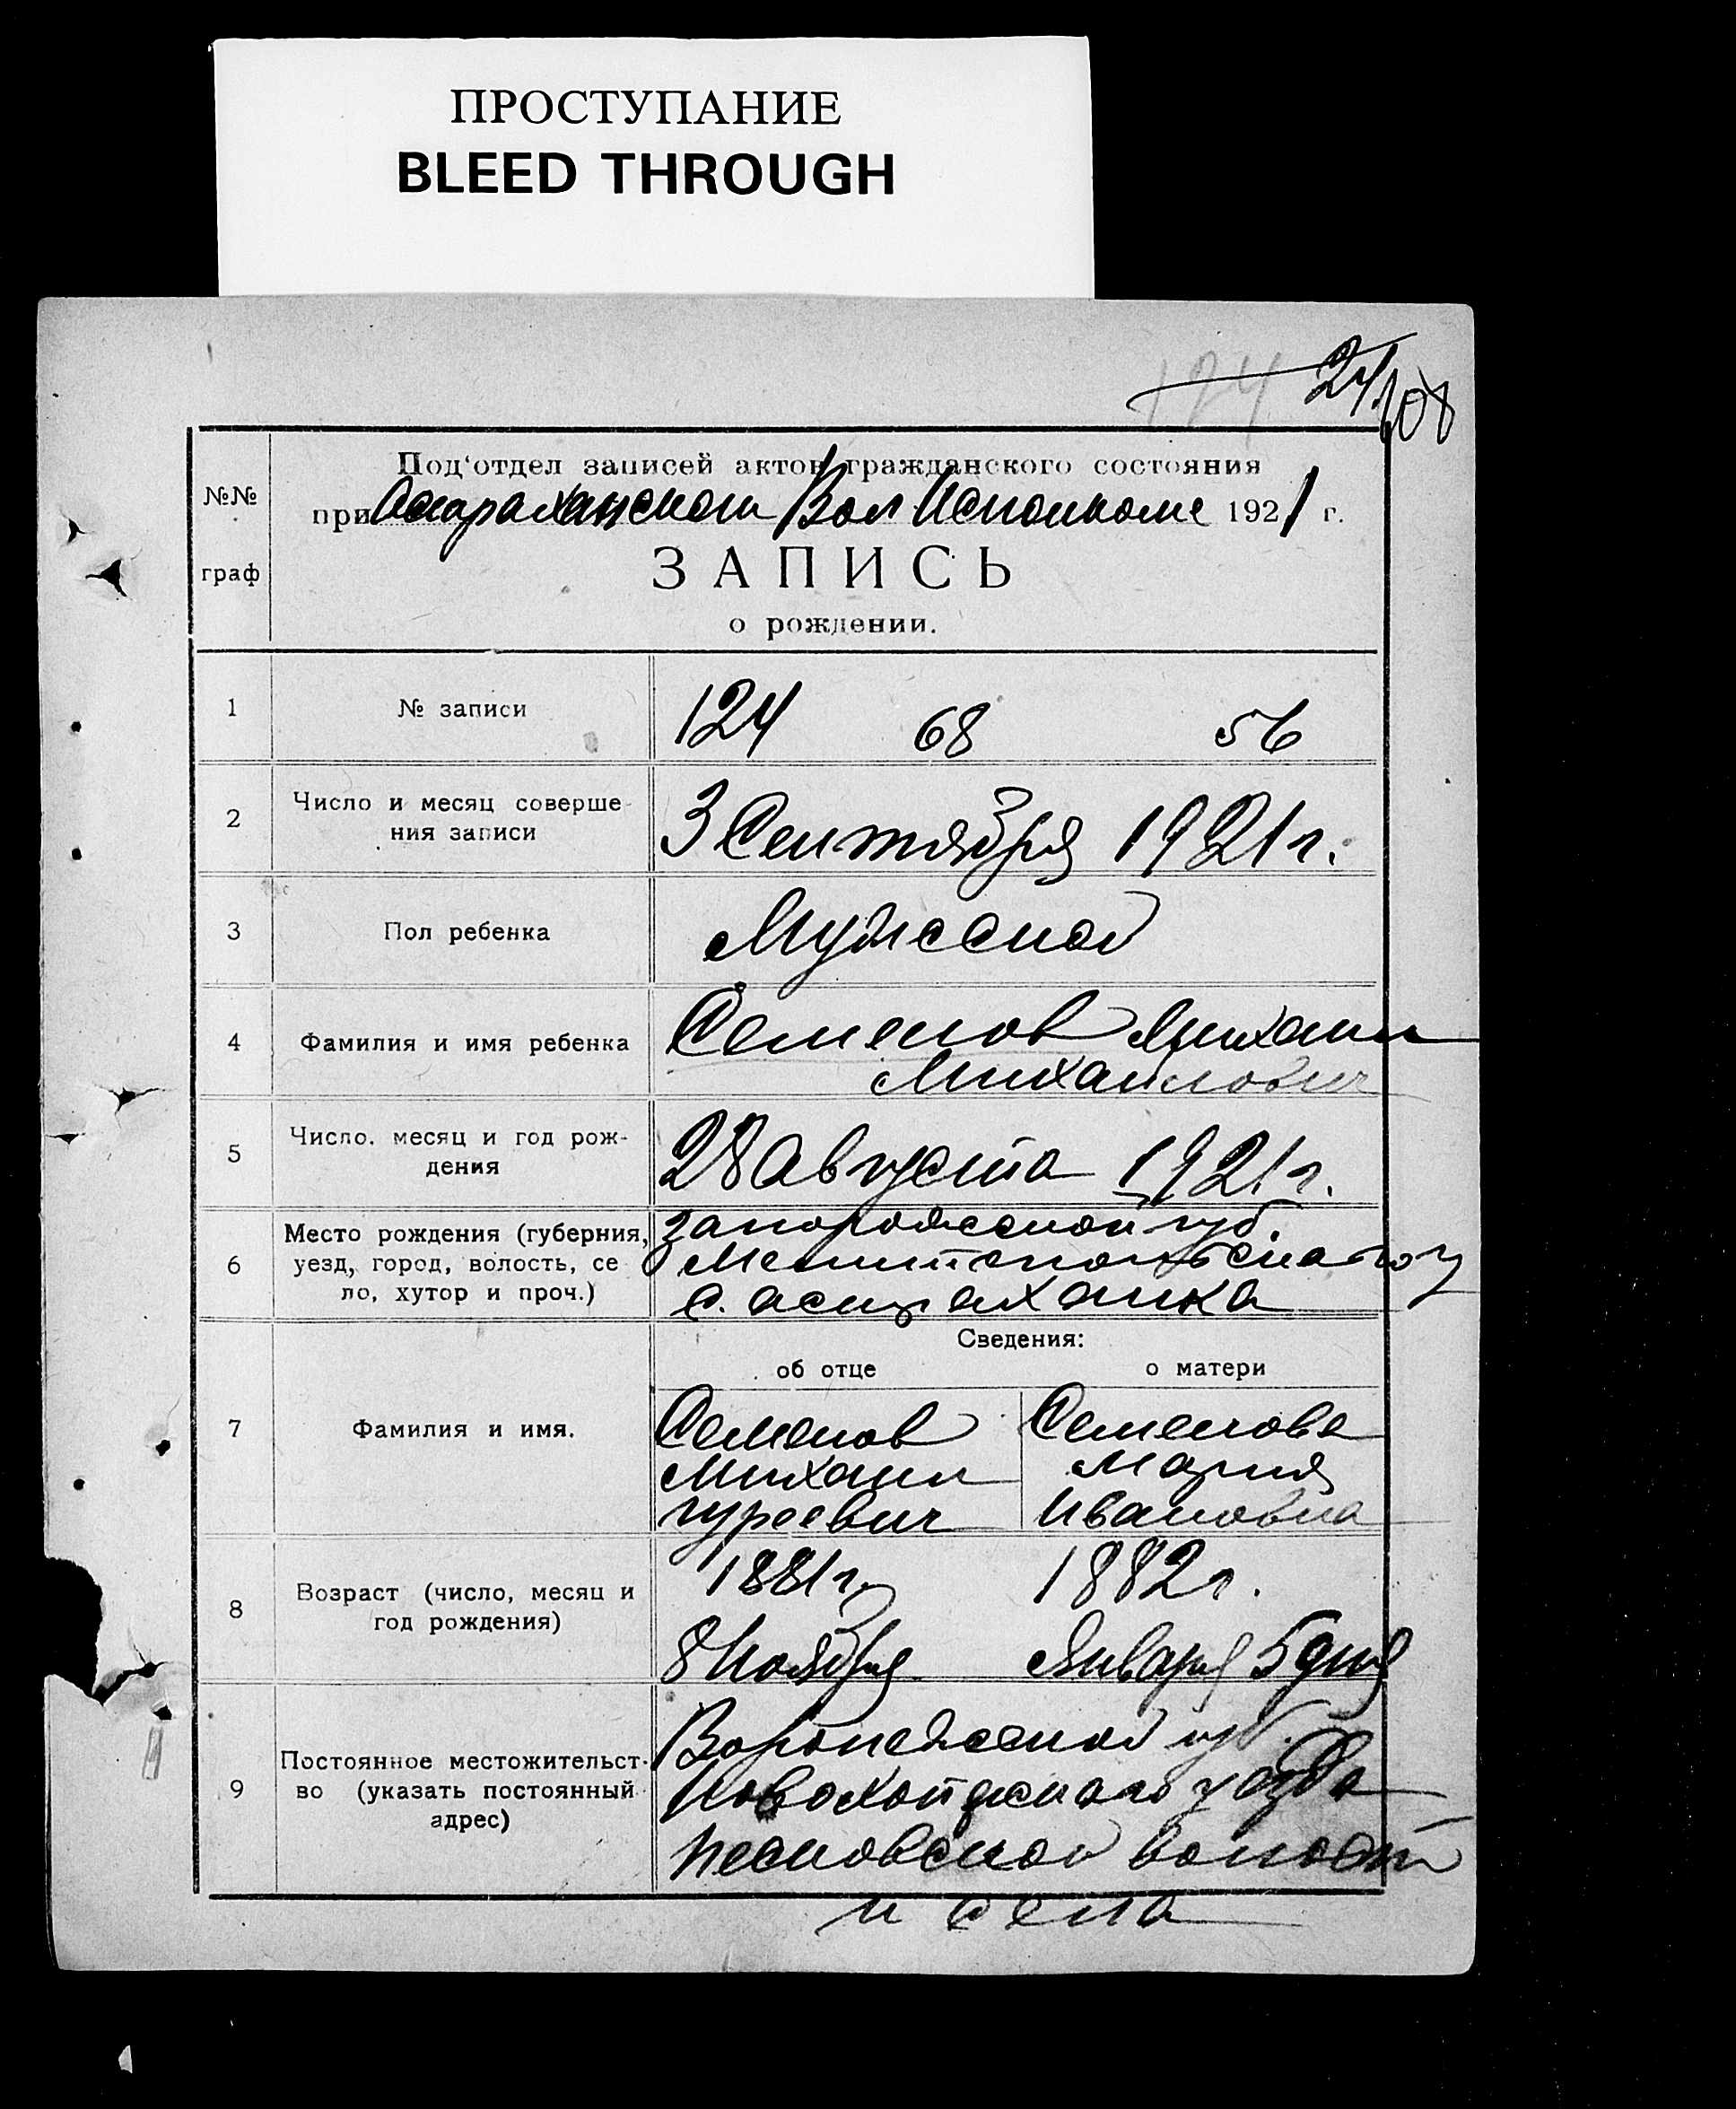 ПРОСТУПАНИЕ
BLEED THROUGH
124 24 108
Под'отдел записей актов гражданского состояния
№№ при Астраханском Вол Исполкоме 1921 г.
граф ЗАПИСЬ
о рождении.
1 № записи 124 68 56
2 Число и месяц соверше-
ния записи 3 Сентября 1921 г.
3 Пол ребенка Мужеской
4 Фамилия и имя ребенка Семенов Михаил
Михайлович
5 Число. месяц и год рож-
дения 28 Августа 1921 г.
6 Место рождения (губерния, Запорожеской губ.
уезд, город, волость, се Мелитопольскаго у
ло, хутор и проч.) с. астраханка
Сведения:
об отце о матери
7 Фамилия и имя. Семенов Семенова
Михаил Мария
гуреевич Ивановна
8 Возраст (число, месяц и 1881 г. 1882 г.
год рождения) 8 Ноября Января 5 дня
9 Постоянное местожительст- Воронежеской губ.
во (указать постоянный Новохоперскаго уезда
адрес) Песковской волости
и села